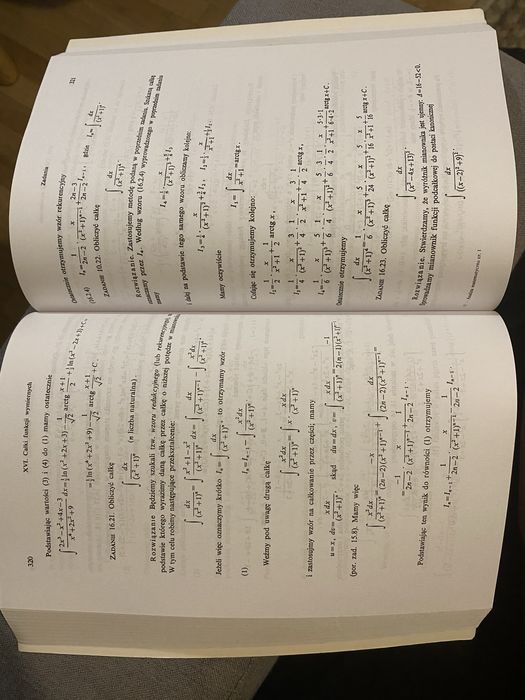 320
XVI. Całki funkcji wymiernych
Podstawiając wartości (3) i (4) do (1) mamy ostatecznie
∫ (2x³−x²+4x−3)/(x⁴+2x²+9) dx = ½ ln(x²+2x+3) − 1/√2 arctg (x+1)/√2 + ½ ln(x²−2x+3) + C₁
= ½ ln(x⁴+2x²+9) − 1/√2 arctg (x+1)/√2 + C.
ZADANIE 16.21. Obliczyć całkę
∫ dx/(x²+1)ⁿ (n liczba naturalna).
Rozwiązanie. Będziemy szukali tzw. wzoru redukcyjnego (lub rekurencyjnego), na
podstawie którego wyrazimy daną całkę przez całkę o niższej potędze w mianowniku.
W tym celu robimy następujące przekształcenie:
∫ dx/(x²+1)ⁿ = ∫ (x²+1−x²)/(x²+1)ⁿ dx = ∫ dx/(x²+1)ⁿ⁻¹ − ∫ x²dx/(x²+1)ⁿ.
Jeżeli więc oznaczymy krótko Iₙ = ∫ dx/(x²+1)ⁿ, to otrzymamy wzór
(1) Iₙ = Iₙ₋₁ − ∫ x²dx/(x²+1)ⁿ.
Weźmy pod uwagę drugą całkę
∫ x²dx/(x²+1)ⁿ = ∫ x · x dx/(x²+1)ⁿ
i zastosujmy wzór na całkowanie przez części; mamy
u=x, dv = x dx/(x²+1)ⁿ, skąd du=dx, v = ∫ x dx/(x²+1)ⁿ = −1/(2(n−1)(x²+1)ⁿ⁻¹)
(por. zad. 15.8). Mamy więc
∫ x²dx/(x²+1)ⁿ = −x/((2n−2)(x²+1)ⁿ⁻¹) + ∫ dx/((2n−2)(x²+1)ⁿ⁻¹) =
= −1/(2n−2) · x/(x²+1)ⁿ⁻¹ + 1/(2n−2) Iₙ₋₁.
Podstawiając ten wynik do równości (1) otrzymujemy
Iₙ = Iₙ₋₁ + 1/(2n−2) · x/(x²+1)ⁿ⁻¹ − 1/(2n−2) Iₙ₋₁.
Zadania
321
Ostatecznie otrzymujemy wzór rekurencyjny
(16.2.4) Iₙ = 1/(2n−2) · x/(x²+1)ⁿ⁻¹ + (2n−3)/(2n−2) Iₙ₋₁, gdzie Iₙ = ∫ dx/(x²+1)ⁿ.
ZADANIE 16.22. Obliczyć całkę
∫ dx/(x²+1)⁴.
Rozwiązanie. Zastosujemy metodę podaną w poprzednim zadaniu. Szukaną całkę
oznaczymy przez I₄. Według wzoru (16.2.4) wyprowadzonego w poprzednim zadaniu
mamy
I₄ = 1/6 · x/(x²+1)³ + 5/6 I₃
i dalej na podstawie tego samego wzoru obliczamy kolejno:
I₃ = ¼ · x/(x²+1)² + ¾ I₂, I₂ = ½ · x/(x²+1) + ½ I₁.
Mamy oczywiście
I₁ = ∫ dx/(x²+1) = arctg x.
Cofając się otrzymujemy kolejno:
I₂ = 1/2 · x/(x²+1) + 1/2 arctg x,
I₃ = 1/4 · x/(x²+1)² + 3/4 · 1/2 · x/(x²+1) + 3/4 · 1/2 arctg x,
I₄ = 1/6 · x/(x²+1)³ + 5/6 · 1/4 · x/(x²+1)² + 5/6 · 3/4 · 1/2 · x/(x²+1) + 5·3·1/6·4·2 arctg x + C.
Ostatecznie otrzymujemy
∫ dx/(x²+1)⁴ = 1/6 · x/(x²+1)³ + 5/24 · x/(x²+1)² + 5/16 · x/(x²+1) + 5/16 arctg x + C.
ZADANIE 16.23. Obliczyć całkę
∫ dx/(x²−4x+13)².
Rozwiązanie. Stwierdzamy, że wyróżnik mianownika jest ujemny: Δ=16−52<0.
Sprowadzamy mianownik funkcji podcałkowej do postaci kanonicznej
∫ dx/[(x−2)²+9]².